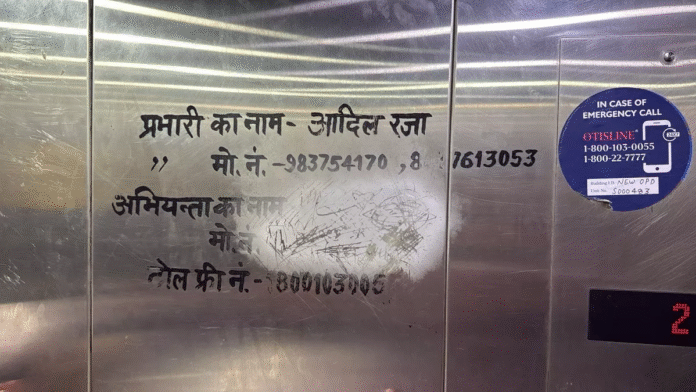 प्रभारी का नाम - आदिल रज़ा
,, मो. नं. - 983754170 , 8 7613053
अभियन्ता का नाम
मो. नं.
टोल फ्री नं. - 1800103005
IN CASE OF
EMERGENCY CALL
OTISLINE
1-800-103-0055
1-800-22-7777
Building I/D NEW OPD
Unit No. 5D00483
2